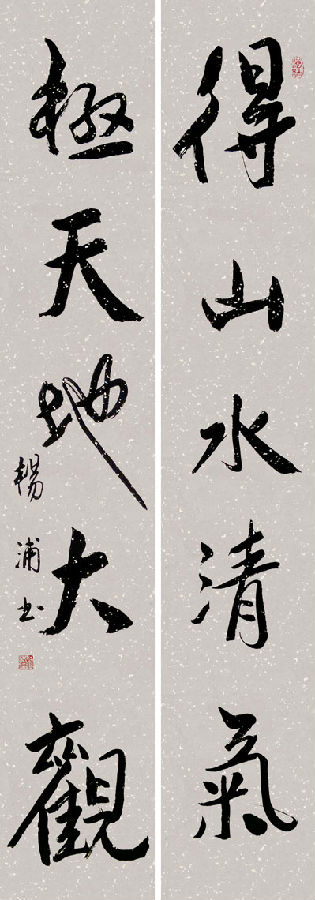 得山水清氣
極天地大觀
楊浦书